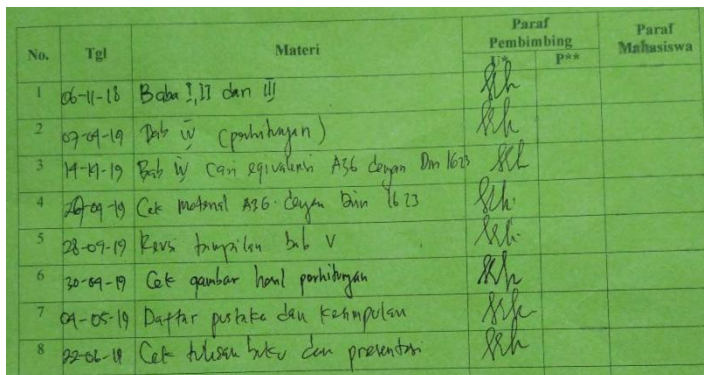 No. Tgl Materi Paraf Pembimbing Paraf Mahasiswa
U* P**
1 06-11-18 Baba I, II dan III
2 07-04-19 Bab IV (perhitungan)
3 Bab IV Cari eqivalensi A36 dengan Din 1623
4 Cek material A36 dengan Din 1623
5 28-04-19 Revisi tampilan bab V
6 30-04-19 Cek gambar hasil perhitungan
7 04-05-19 Daftar pustaka dan Kesimpulan
8 Cek tulisan buku dan presentasi